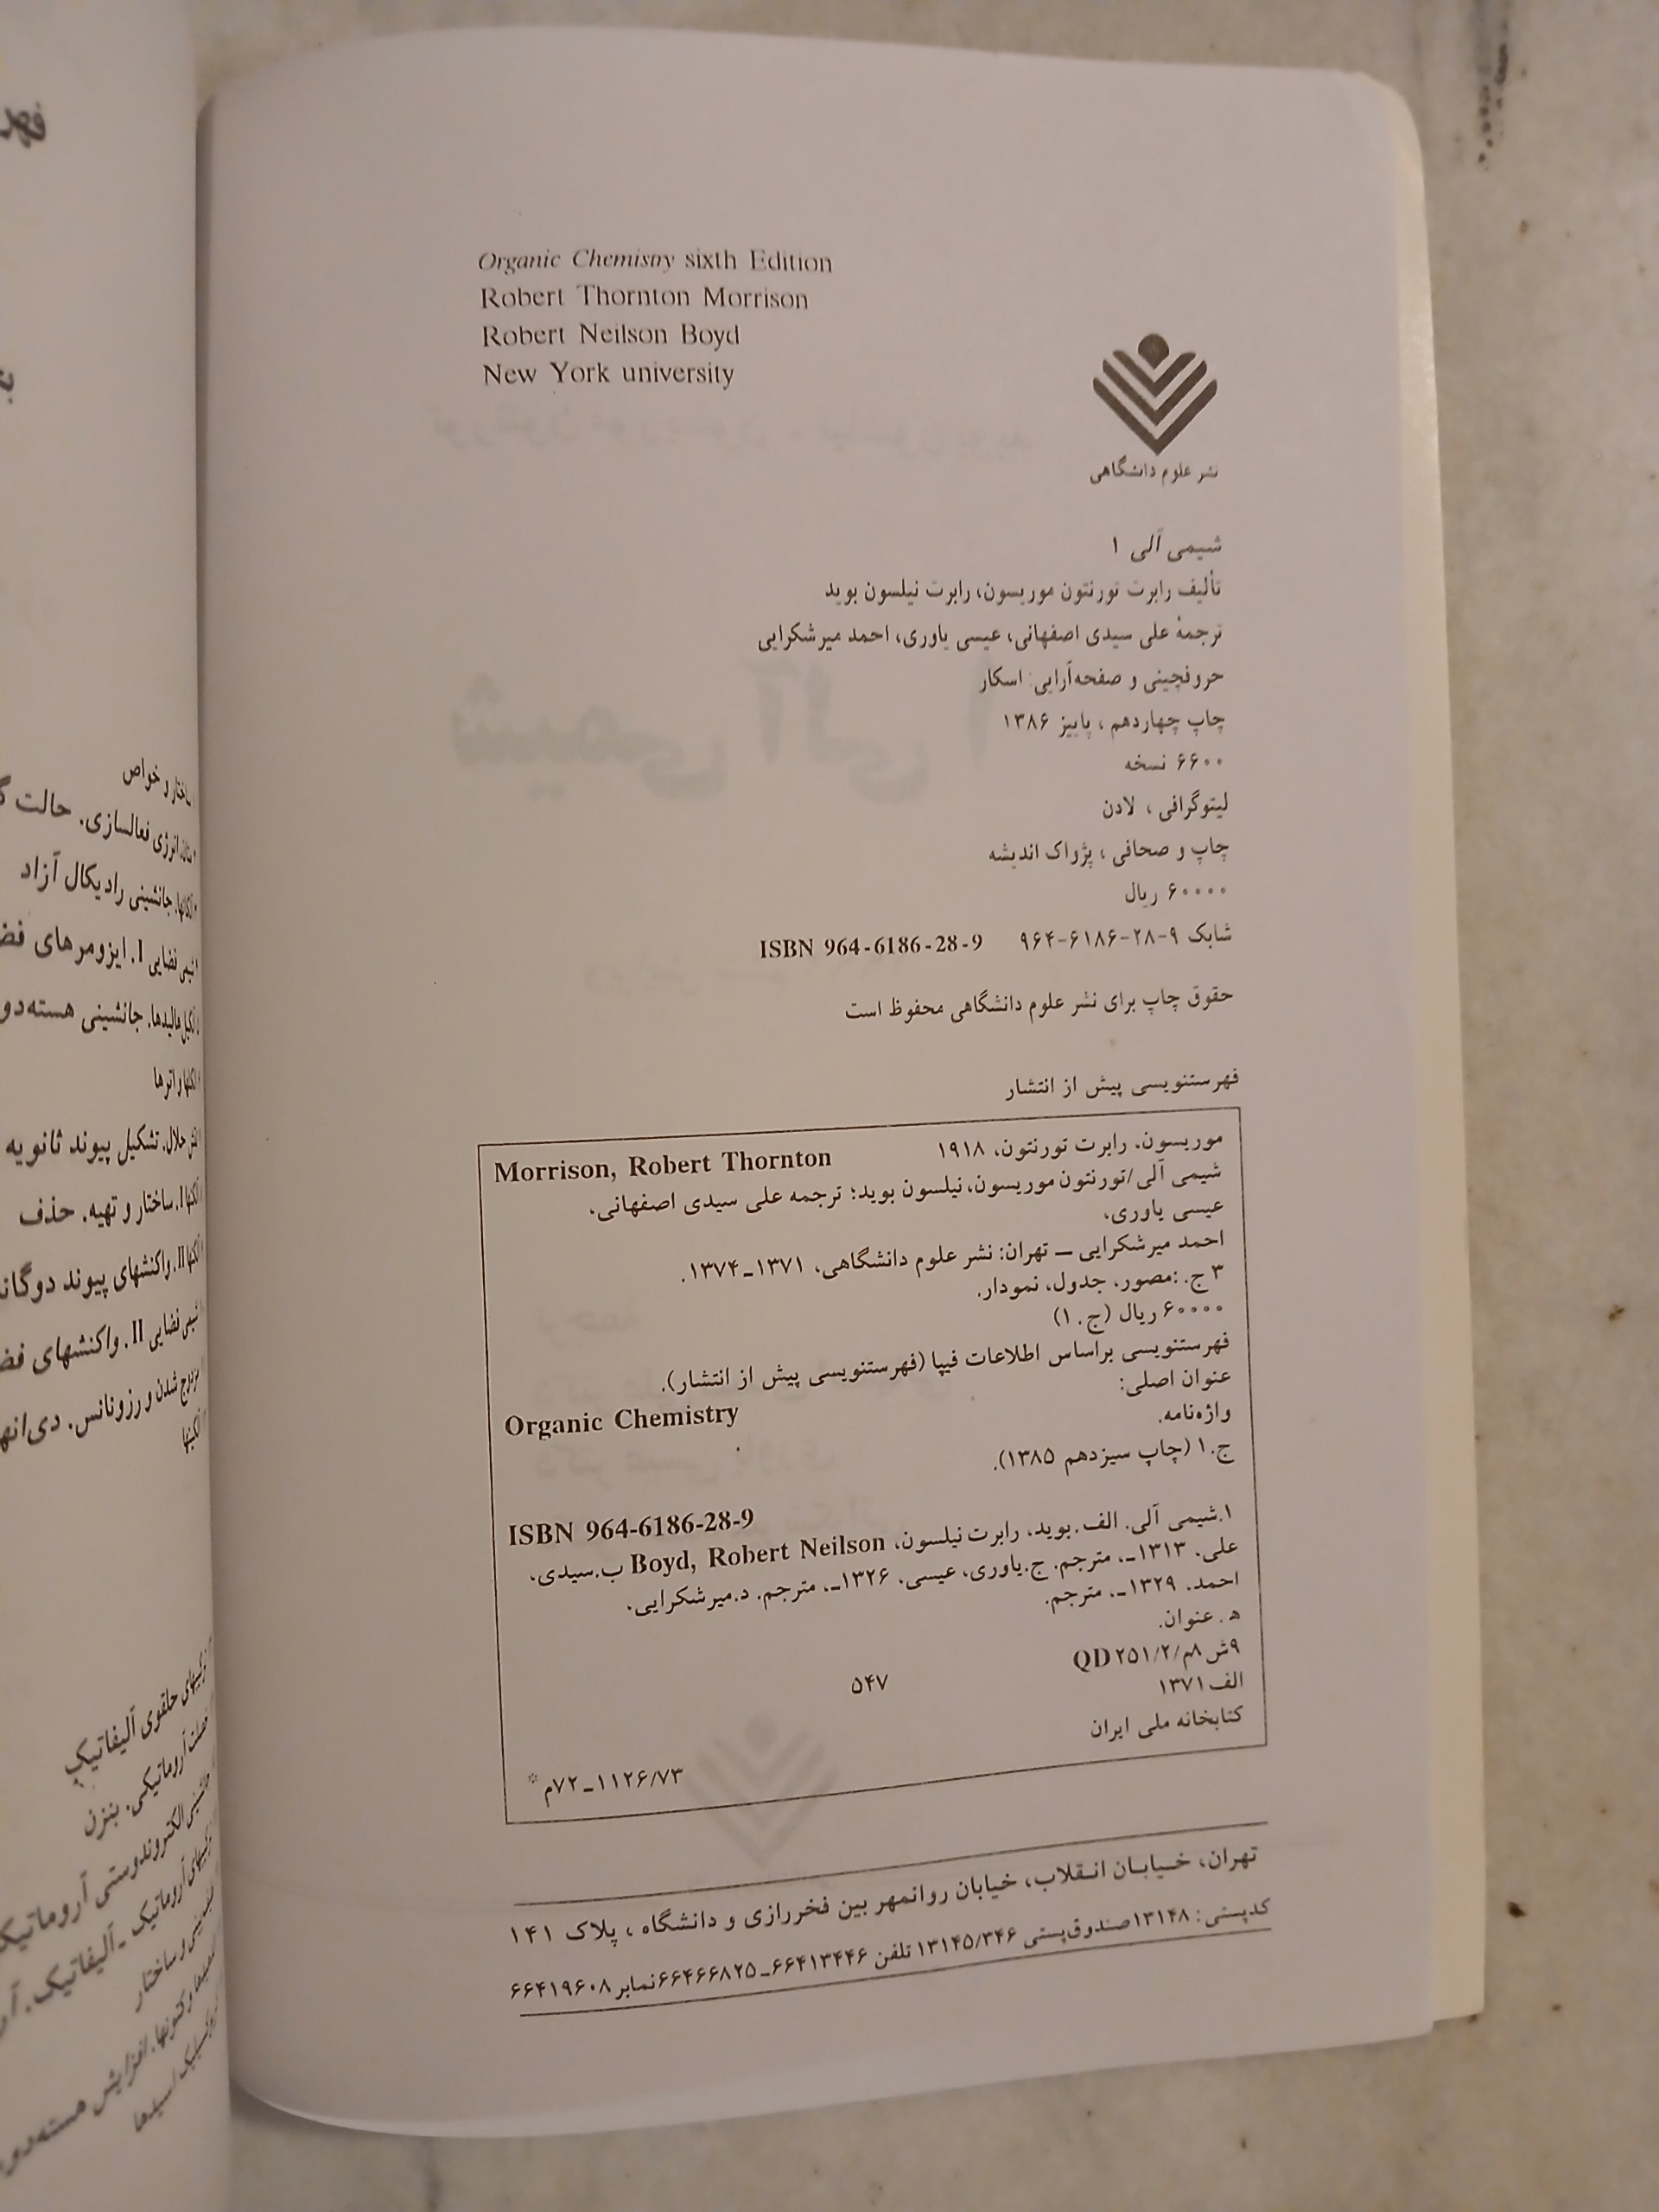 Organic Chemistry sixth Edition
Robert Thornton Morrison
Robert Neilson Boyd
New York university
نشر علوم دانشگاهی
شیمی آلی ۱
تألیف رابرت تورنتون موریسون، رابرت نیلسون بوید
ترجمهٔ علی سیدی اصفهانی، عیسی یاوری، احمد میرشکرایی
حروفچینی و صفحه‌آرایی: اسکار
چاپ چهاردهم ، پاییز ۱۳۸۶
۶۶۰۰ نسخه
لیتوگرافی ، لادن
چاپ و صحافی ، پژواک اندیشه
۶۰۰۰۰ ریال
شابک ۹-۲۸-۶۱۸۶-۹۶۴ ISBN 964-6186-28-9
حقوق چاپ برای نشر علوم دانشگاهی محفوظ است
فهرستنویسی پیش از انتشار
موریسون، رابرت تورنتون، ۱۹۱۸ Morrison, Robert Thornton
شیمی آلی/تورنتون موریسون، نیلسون بوید؛ ترجمه علی سیدی اصفهانی،
عیسی یاوری،
احمد میرشکرایی ــ تهران: نشر علوم دانشگاهی، ۱۳۷۱ـ۱۳۷۴.
۳ ج. :مصور، جدول، نمودار.
۶۰۰۰۰ ریال (ج. ۱)
فهرستنویسی براساس اطلاعات فیپا (فهرستنویسی پیش از انتشار).
عنوان اصلی:
Organic Chemistry
واژه‌نامه.
ج.۱ (چاپ سیزدهم ۱۳۸۵).
ISBN 964-6186-28-9
۱.شیمی آلی. الف.بوید، رابرت نیلسون، Boyd, Robert Neilson ب.سیدی،
علی، ۱۳۱۳ـ، مترجم. ج.یاوری، عیسی، ۱۳۲۶ـ، مترجم. د.میرشکرایی،
احمد، ۱۳۲۹ـ، مترجم.
ه‍ . عنوان.
۹ش۸م/۲/۲۵۱ QD
الف۱۳۷۱ ۵۴۷
کتابخانه ملی ایران
۱۱۲۶/۷۳ـ۷۲م *
تهران، خیابان انقلاب، خیابان روانمهر بین فخررازی و دانشگاه ، پلاک ۱۴۱
کدپستی: ۱۳۱۴۸صندوق‌پستی ۱۳۱۴۵/۳۴۶ تلفن ۶۶۴۱۳۴۴۶ـ۶۶۴۶۶۸۲۵نمابر ۶۶۴۱۹۶۰۸
ساختار و خواص
انرژی فعالسازی. حالت
جانشینی رادیکال آزاد
شیمی فضایی I. ایزومرهای
جانشینی هسته‌دو
الکلها و اترها
نقش حلال. تشکیل پیوند ثانویه
آلکنها I. ساختار و تهیه. حذف
آلکنها II. واکنشهای پیوند دوگانه
شیمی فضایی II. واکنشهای
مزدوج شدن و رزونانس. دی‌انها
آلکینها
ترکیبهای حلقوی آلیفاتیک
خصلت آروماتیکی. بنزن
جانشینی الکتروندوستی آروماتیک
ترکیبهای آروماتیک ـ آلیفاتیک.
طیف‌بینی و ساختار
آلدهیدها و کتونها. افزایش هسته‌دو
کربوکسیلیک اسیدها